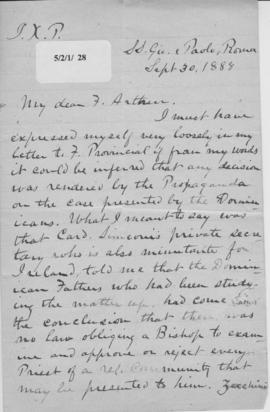 J. X. P.
5/2/1/ 28
SS. Gio. e Paolo, Roma
Sept 30, 1888
My dear F. Arthur.
I must have
expressed myself very loosely in my
letter to F. Provincial if from my words
it could be inferred that any decision
was rendered by the Propaganda
on the case presented by the Domin-
icans. What I meant to say was
that Card. Simeoni's private secre-
tary who is also minutante for
Ireland, told me that the Domin-
ican Fathers who had been study-
ing the matter up, had come to
the conclusion that there was
no law obliging a Bishop to exam-
ine and approve or reject every
Priest of a rel. community that
may be presented to him.